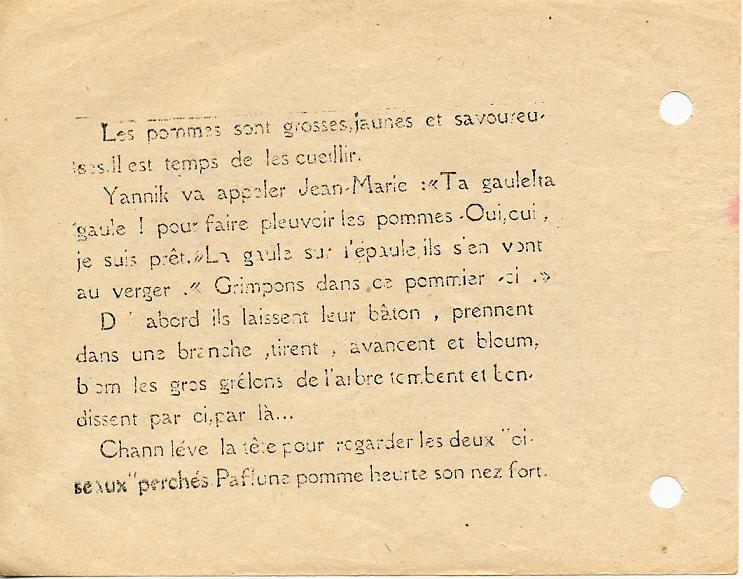 Les pommes sont grosses,jaunes et savoureu-
ses.Il est temps de les cueillir.
Yannik va appeler Jean-Marie :«Ta gaule!ta
gaule ! pour faire pleuvoir les pommes -Oui,oui ,
je suis prêt.»La gaule sur l'épaule,ils s'en vont
au verger .« Grimpons dans ce pommier -ci .»
D ' abord ils laissent leur bâton , prennent
dans une branche ,tirent , avancent et bloum,
bom les gros grêlons de l'arbre tombent et bon-
dissent par ci,par là...
Chann léve la tête pour regarder les deux "oi-
seaux"perchés.Paf!une pomme heurte son nez fort.